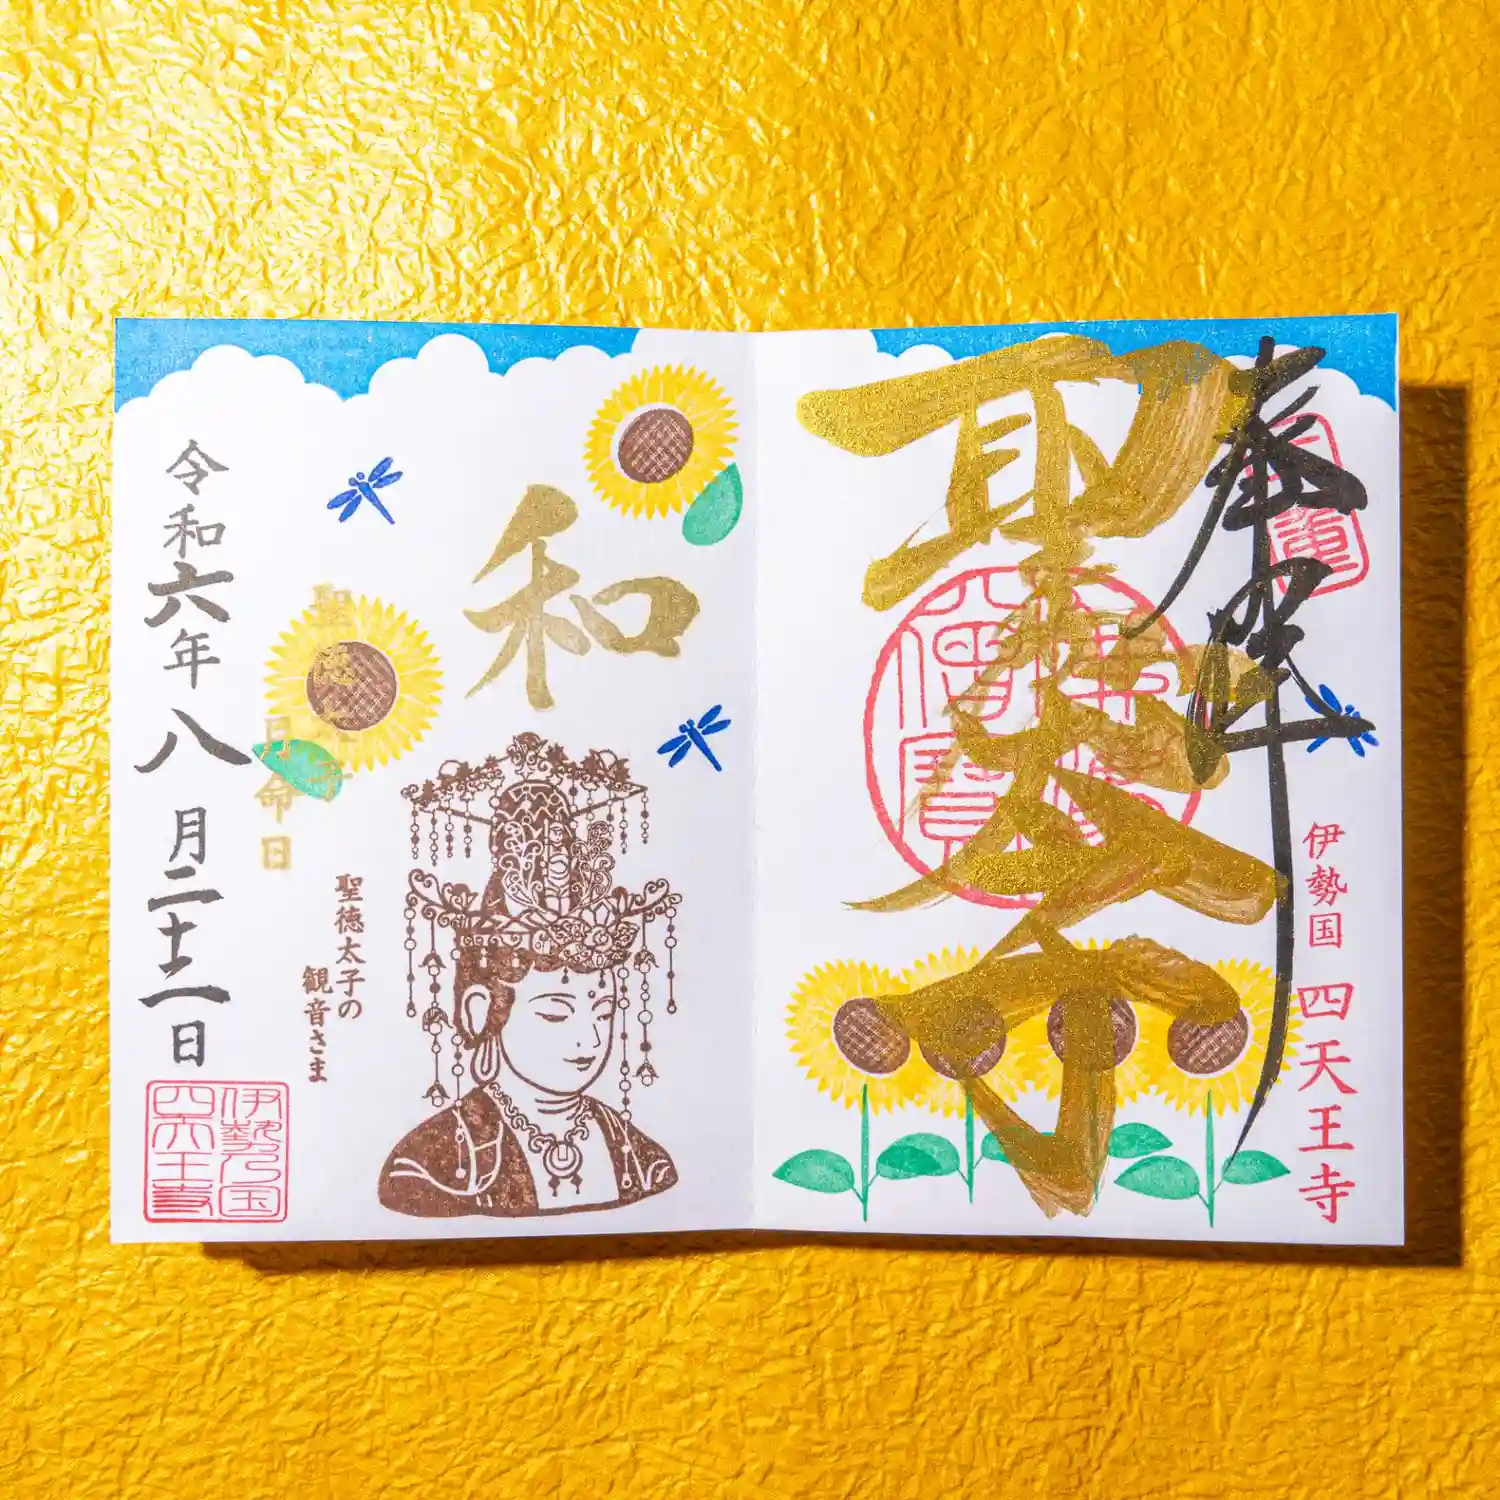 奉拝
聖徳太子
伊勢国 四天王寺
和
聖徳太子の
観音さま
聖徳太子
月命日
令和六年八月二十二日
伊勢乃国
四天王寺